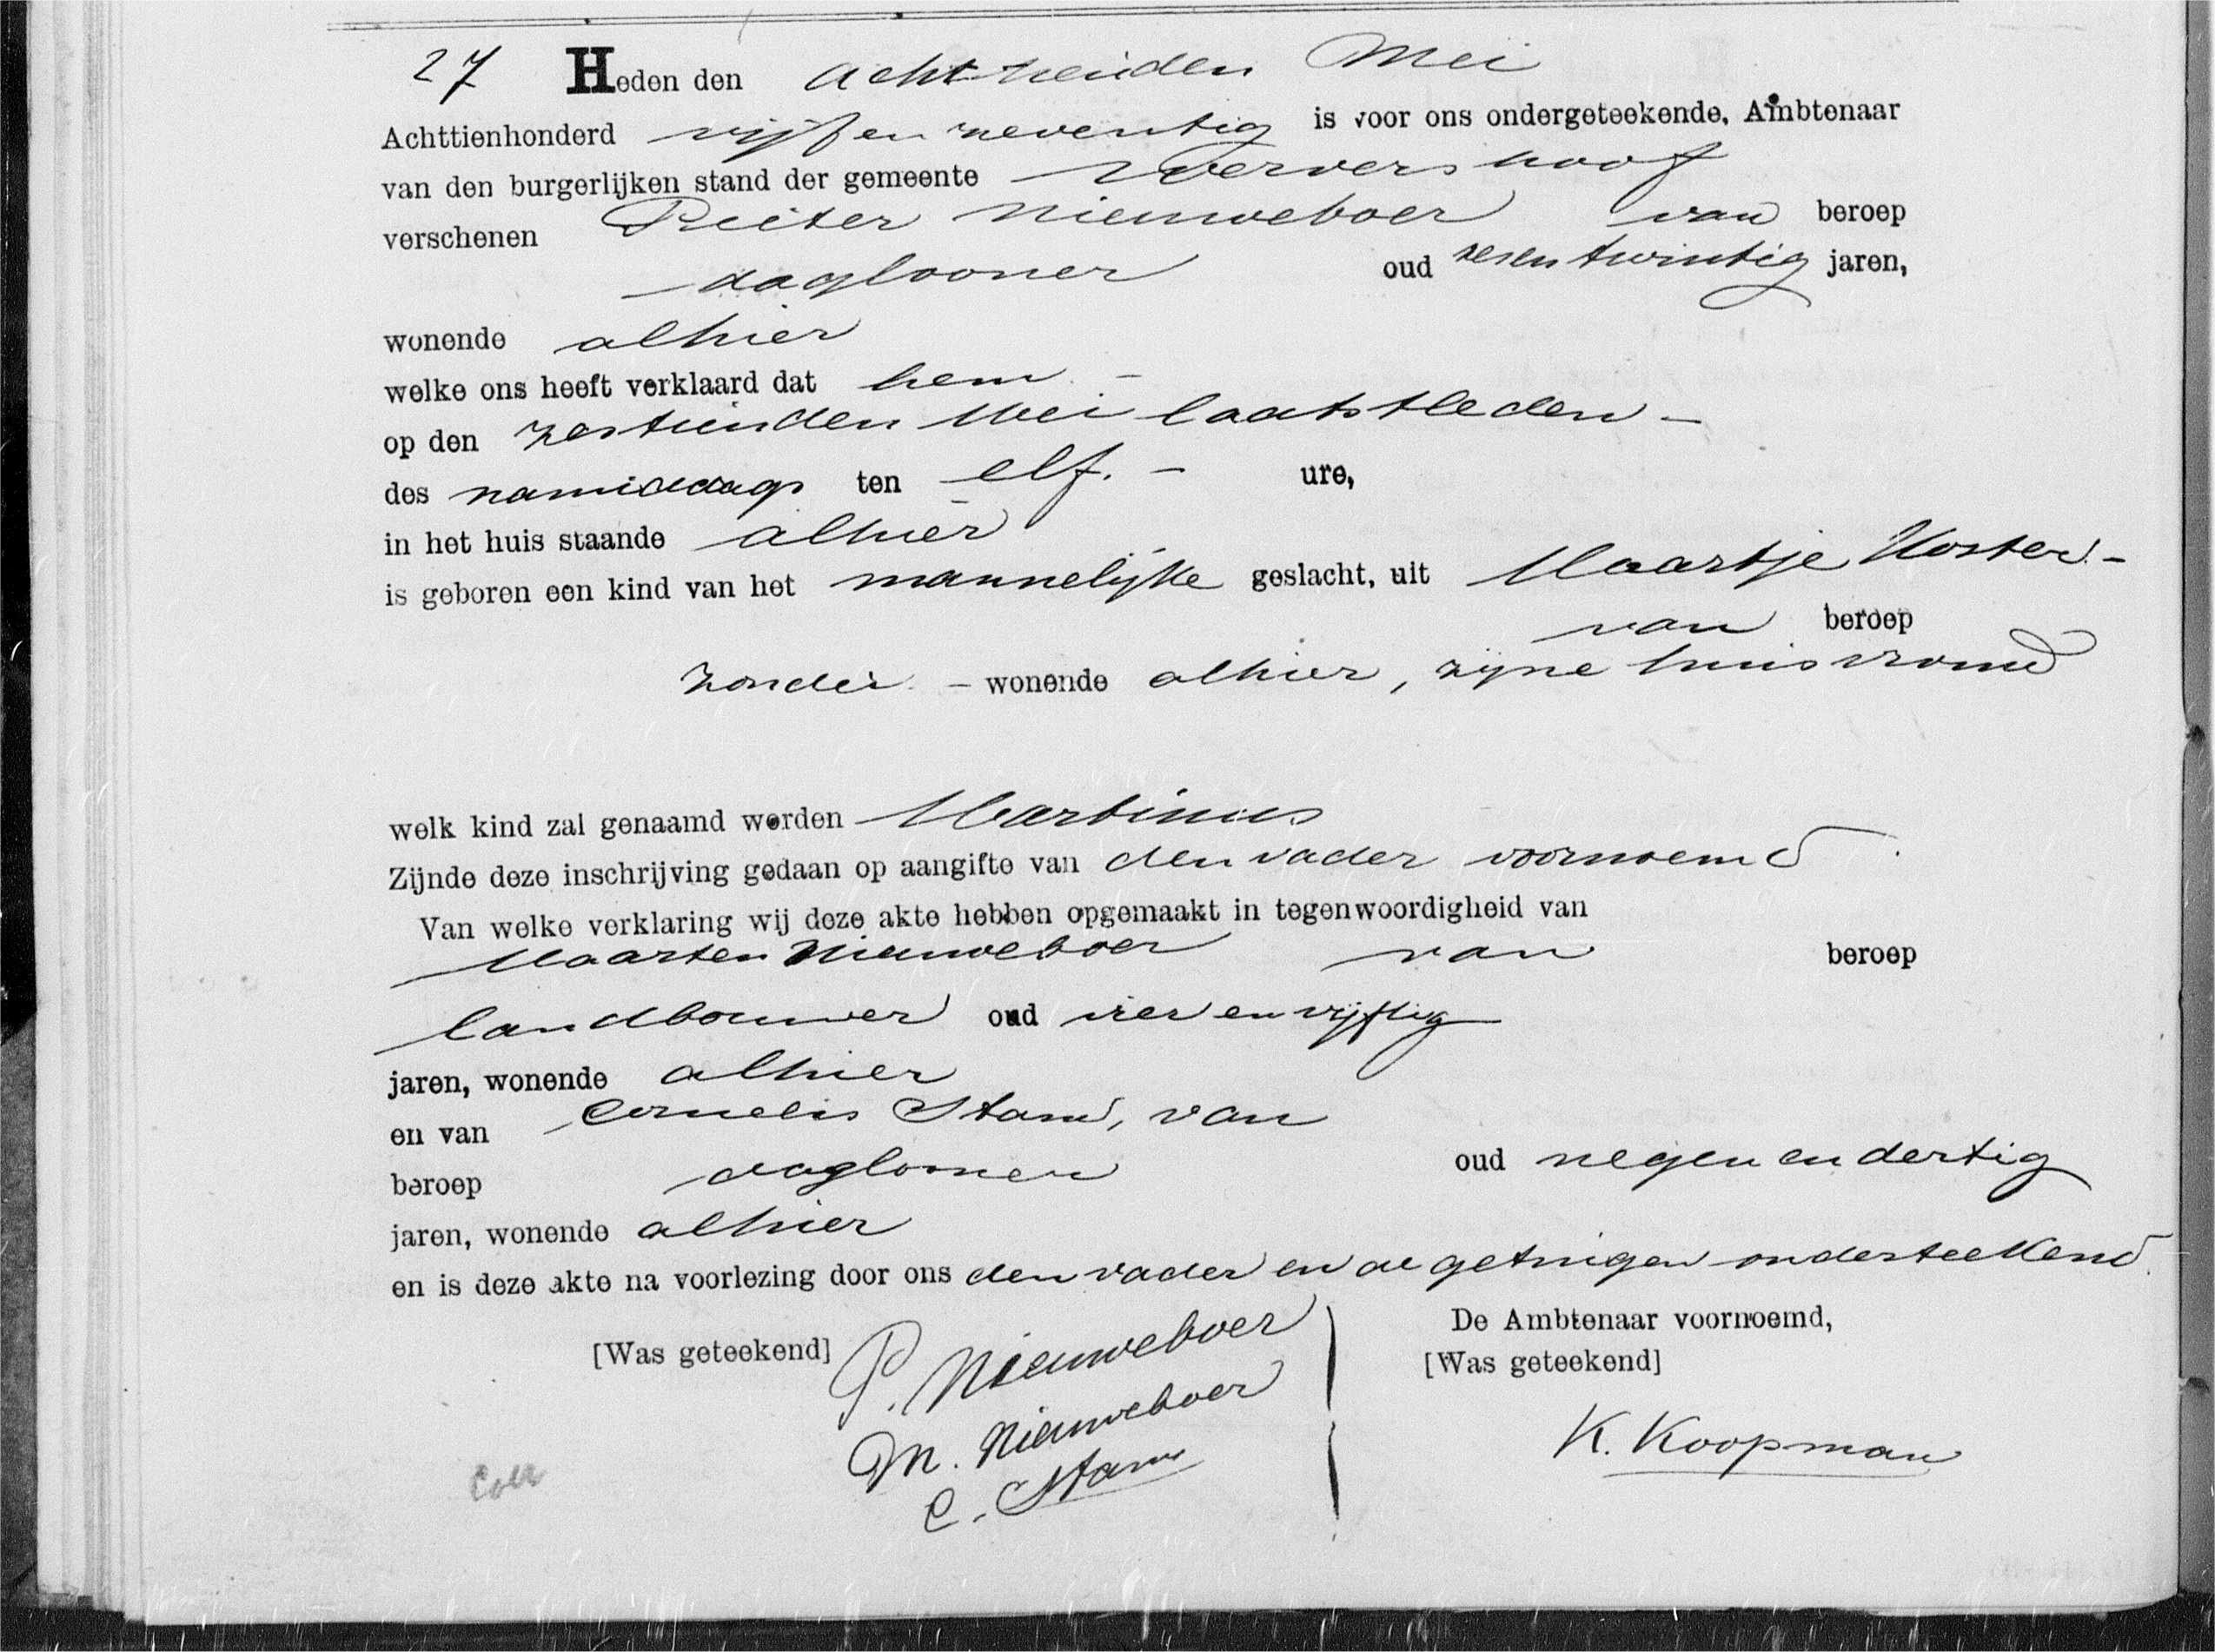 27 Heden den achttienden Mei
Achttienhonderd vijf en zeventig is voor ons ondergeteekende, Ambtenaar
van den burgerlijken stand der gemeente Wervershoof
verschenen Pieter Nieuweboer van beroep
daglooner oud zesentwintig jaren,
wonende alhier
welke ons heeft verklaard dat hem -
op den zestienden Mei laatstleden -
des namiddags ten elf. - ure,
in het huis staande alhier
is geboren een kind van het mannelijke geslacht, uit Maartje Koster -
van beroep
zonder - wonende alhier, zijne huisvrouw
welk kind zal genaamd worden Martinus
Zijnde deze inschrijving gedaan op aangifte van den vader voornoemd.
Van welke verklaring wij deze akte hebben opgemaakt in tegenwoordigheid van
Maarten Nieuweboer van beroep
landbouwer oud vier en vijftig
jaren, wonende alhier
en van Cornelis Stam, van
beroep daglooner oud negen en dertig
jaren, wonende alhier
en is deze akte na voorlezing door ons den vader en de getuigen onderteekend.
[Was geteekend] P. Nieuweboer
M. Nieuweboer
C. Stam
De Ambtenaar voornoemd,
[Was geteekend]
K. Koopman